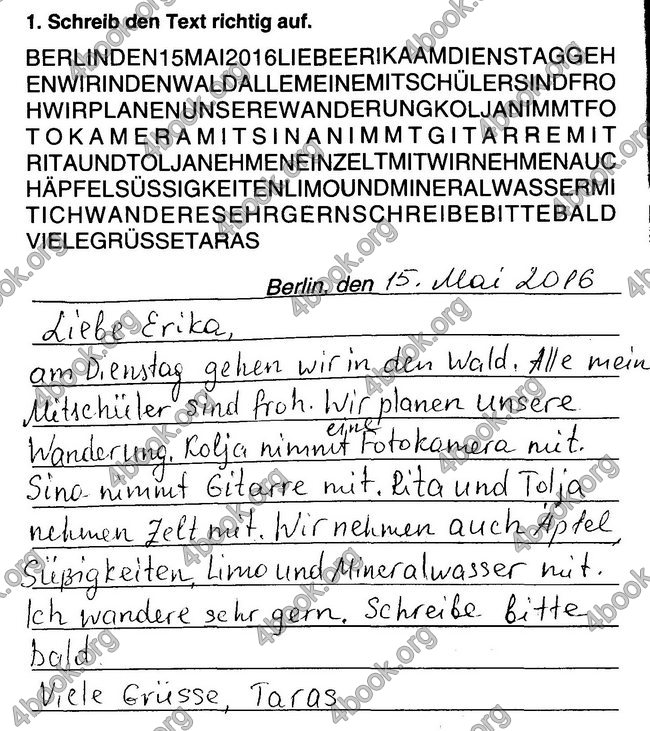 1. Schreib den Text richtig auf.
BERLINDEN15MAI2016LIEBEERIKAAMDIENSTAGGEH
ENWIRINDENWALDALLEMEINEMITSCHÜLERSINDFRO
HWIRPLANENUNSEREWANDERUNGKOLJANIMMTFO
TOKAMERAMITSINANIMMTGITARREMIT
RITAUNDTOLJANEHMENEINZELTMITWIRNEHMENAUC
HÄPFELSÜSSIGKEITENLIMOUNDMINERALWASSERMI
TICHWANDERESEHRGERNSCHREIBEBITTEBALD
VIELEGRÜSSETARAS
Berlin, den 15. Mai 2016
Liebe Erika,
am Dienstag gehen wir in den Wald. Alle mein
Mitschüler sind froh. Wir planen unsere
Wanderung. Kolja nimmt eine Fotokamera mit.
Sina nimmt Gitarre mit. Rita und Tolja
nehmen Zelt mit. Wir nehmen auch Äpfel,
Süßigkeiten, Limo und Mineralwasser mit.
Ich wandere sehr gern. Schreibe bitte
bald.
Viele Grüsse, Taras
4book.org